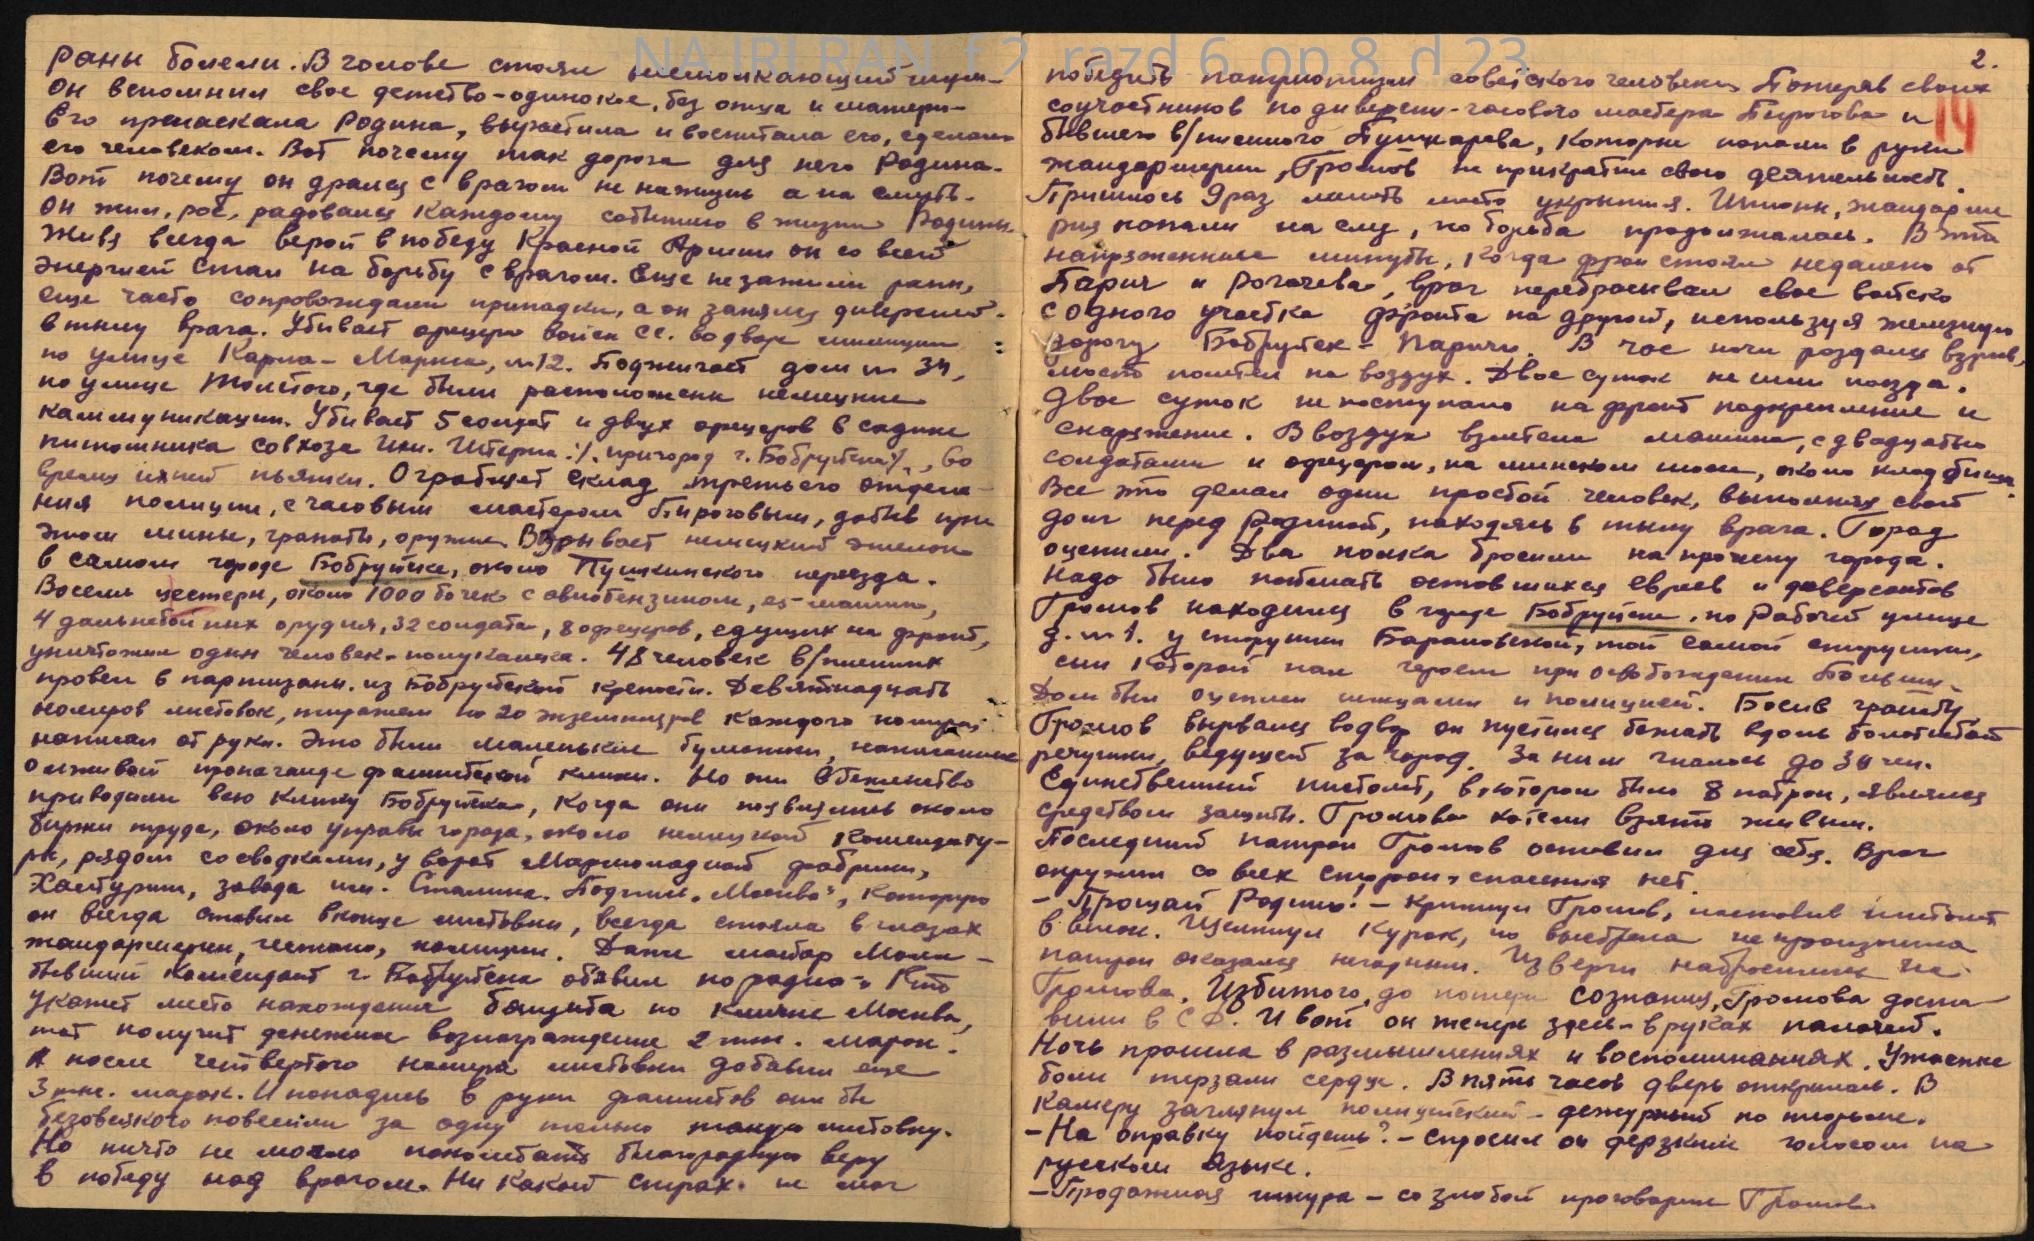 NA IRI RAN f 2 razd 6 op 8 d 23
раны болели. В голове стоял несмолкающий шум.
Он вспомнил свое детство-одинокое, без отца и матери.
Его приласкала Родина, вырастила и воспитала его, сделала
его человеком. Вот почему так дорога для него Родина.
Вот почему он дрался с врагом не на жизнь а на смерть.
Он жил, рос, радовался каждому событию в жизни Родины.
Живя всегда верой в победу Красной Армии он со всей
энергией стал на борьбу с врагом. Еще не зажили раны,
еще часто сопровождали припадки, а он занялся диверсией
в тылу врага. Убивает офицера войск СС. во дворе
по улице Карла-Маркса, № 12. Поджигает дом № 34,
по улице Толстого, где были расположены немецкие
каммуникации. Убивает 5 солдат и двух офицеров в садике
питомника совхоза Им. Штерна ./. пригород г. Бобруйска ./., во
время пьянки. Ограбляет склад третьего отделе-
ния полиции, с часовым мастером Пироговым, добыв при
этом мины, гранаты, оружие. Взрывает немецкий эшелон
в самом городе Бобруйске, около Пушкинского переезда.
Восемь цестерн, около 1000 бочек с авиабензином, машин,
4 дальнебойных орудия, 32 солдата, 8 офицеров, едущих на фронт,
уничтожил один человек-полукалека. 48 человек в/пленных
провел в партизаны из Бобруйской крепости. Девятнадцать
номеров листовок, тиражем по 20 экземпляров каждого номера
написал от руки. Это были маленькие бумажки, написанные
о лживой пропаганде фашистской клики. Но они в бешенство
приводили всю клику Бобруйска, когда они появлялись около
биржи труда, около управы города, около немецкой комендату-
ры, рядом со сводками, у ворот Мармеладной фабрики,
Халтурин, завода им. Сталина. Подпись „Москва", которую
он всегда ставил в конце листовки, всегда стояла в глазах
жандармерии, гестапо, полиции. Даже майор Моли-
бывший комендант г. Бобруйска об'явил по радио: Кто
укажет место нахождения бандита по кличке Москва,
тот получит денежное вознаграждение 2 тыс. марок.
А после четвертого номера листовки добавил еще
3 тыс. марок. И попадись в руки фашистов они бы
безовсякого повесили за одну только такую листовку.
Но ничто не могло поколебать благородную веру
в победу над врагом. Ни какой страх не мог
2.
14
победить патриотизм советского человека. Потеряв своих
соучастников по диверсии-часового мастера Пирогова и
бывшего в/пленного Пушкарева, которые попали в руки
жандармерии, Громов не прикратил свою деятельность.
Пришлось 9 раз менять место укрытия. Шпионы, жандарме
рия попали на след, но борьба продолжалась. В эти
напряженные минуты, когда фронт стоял недалеко от
Парич и Рогачева, враг перебрасывал свое войско
с одного участка фронта на другой, используя железную
дорогу Бобруйск-Паричи. В час ночи раздался взрыв,
мост полетел на воздух. Двое суток не шли поезда.
Двое суток не поступало на фронт подкрепление и
снаряжение. В воздух взлетела машина, с двадцатью
солдатами и офицером, на минском шоссе, около кладбища.
Все это делал один простой человек, выполняя свой
долг перед Родиной, находясь в тылу врага. Город
оцепили. Два полка бросили на прочену города.
Надо было поймать оставшихся евреев и диверсантов
Громов находился в городе Бобруйске. по Рабочей улице
д. № 1. у старушки Барановской, той самой старушки,
сын которой пал героем при освобождении Польши.
Дом был оцеплен немцами и полицией. Бросив гранату
Громов вырвался во двор он пустился бежать вдоль болотистой
речушки, ведущей за город. За ним гналось до 30 чел.
Единственный пистолет, в котором было 8 патрон, являлся
средством защиты. Громова хотели взять живым.
Последний патрон Громов оставил для себя. Враг
окружил со всех сторон, спасения нет.
- Прощай Родина! - крикнул Громов, поставив пистолет
в висок. Щелкнул курок, но выстрела не произошло
патрон оказался негодным. Изверги набросились на
Громова. Избитого, до потери сознания, Громова доста
вили в С.Д. И вот он теперь здесь - в руках палачей.
Ночь прошла в размышлениях и воспоминаниях. Ужасные
боли терзали сердце. В пять часов дверь открылась. В
камеру заглянул полицейский - дежурный по тюрьме.
- На оправку пойдешь? - спросил он дерзким голосом на
русском языке.
- Продажная шкура - со злобой проговорил Громов.